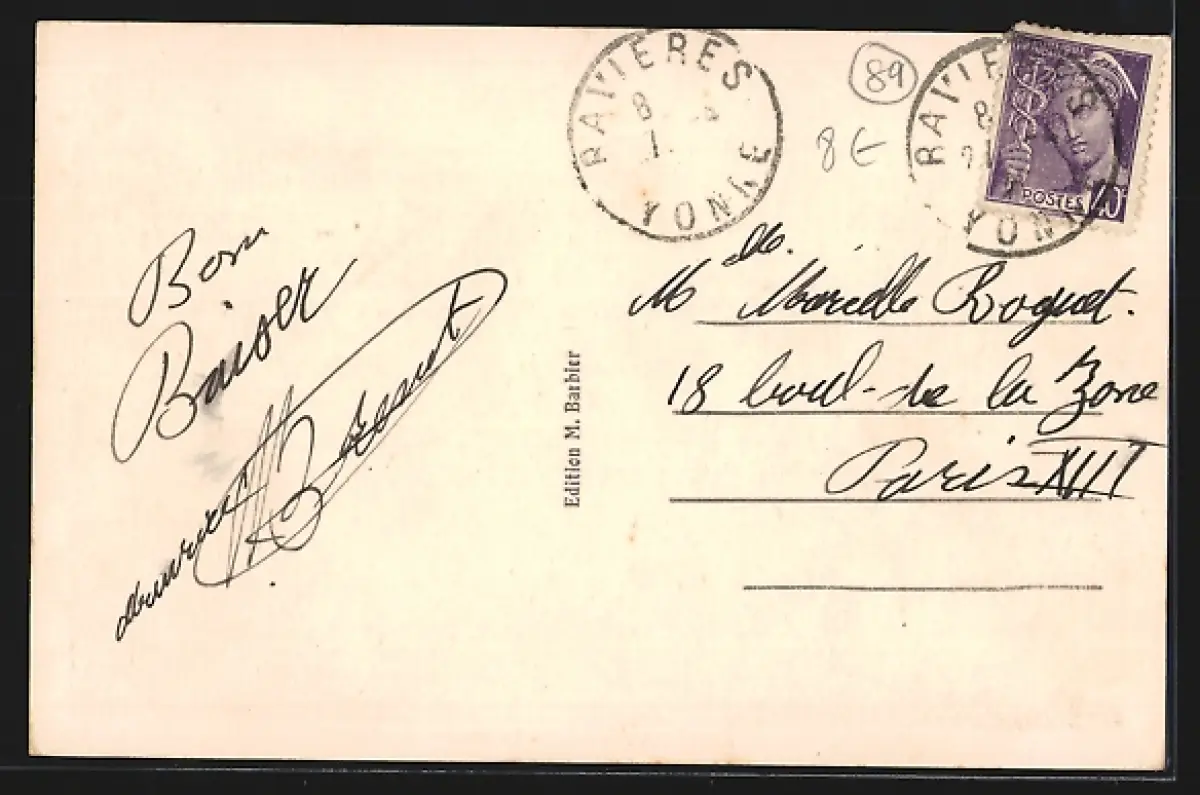 RAVIERES
8
1
YONNE
89
8 E
RAVIERES
8
YONNE
POSTES 40
Bon
Baiser
Edition M. Barbier
M elle. Marcelle Roguet.
18 boul- de la Zone
Paris XIII